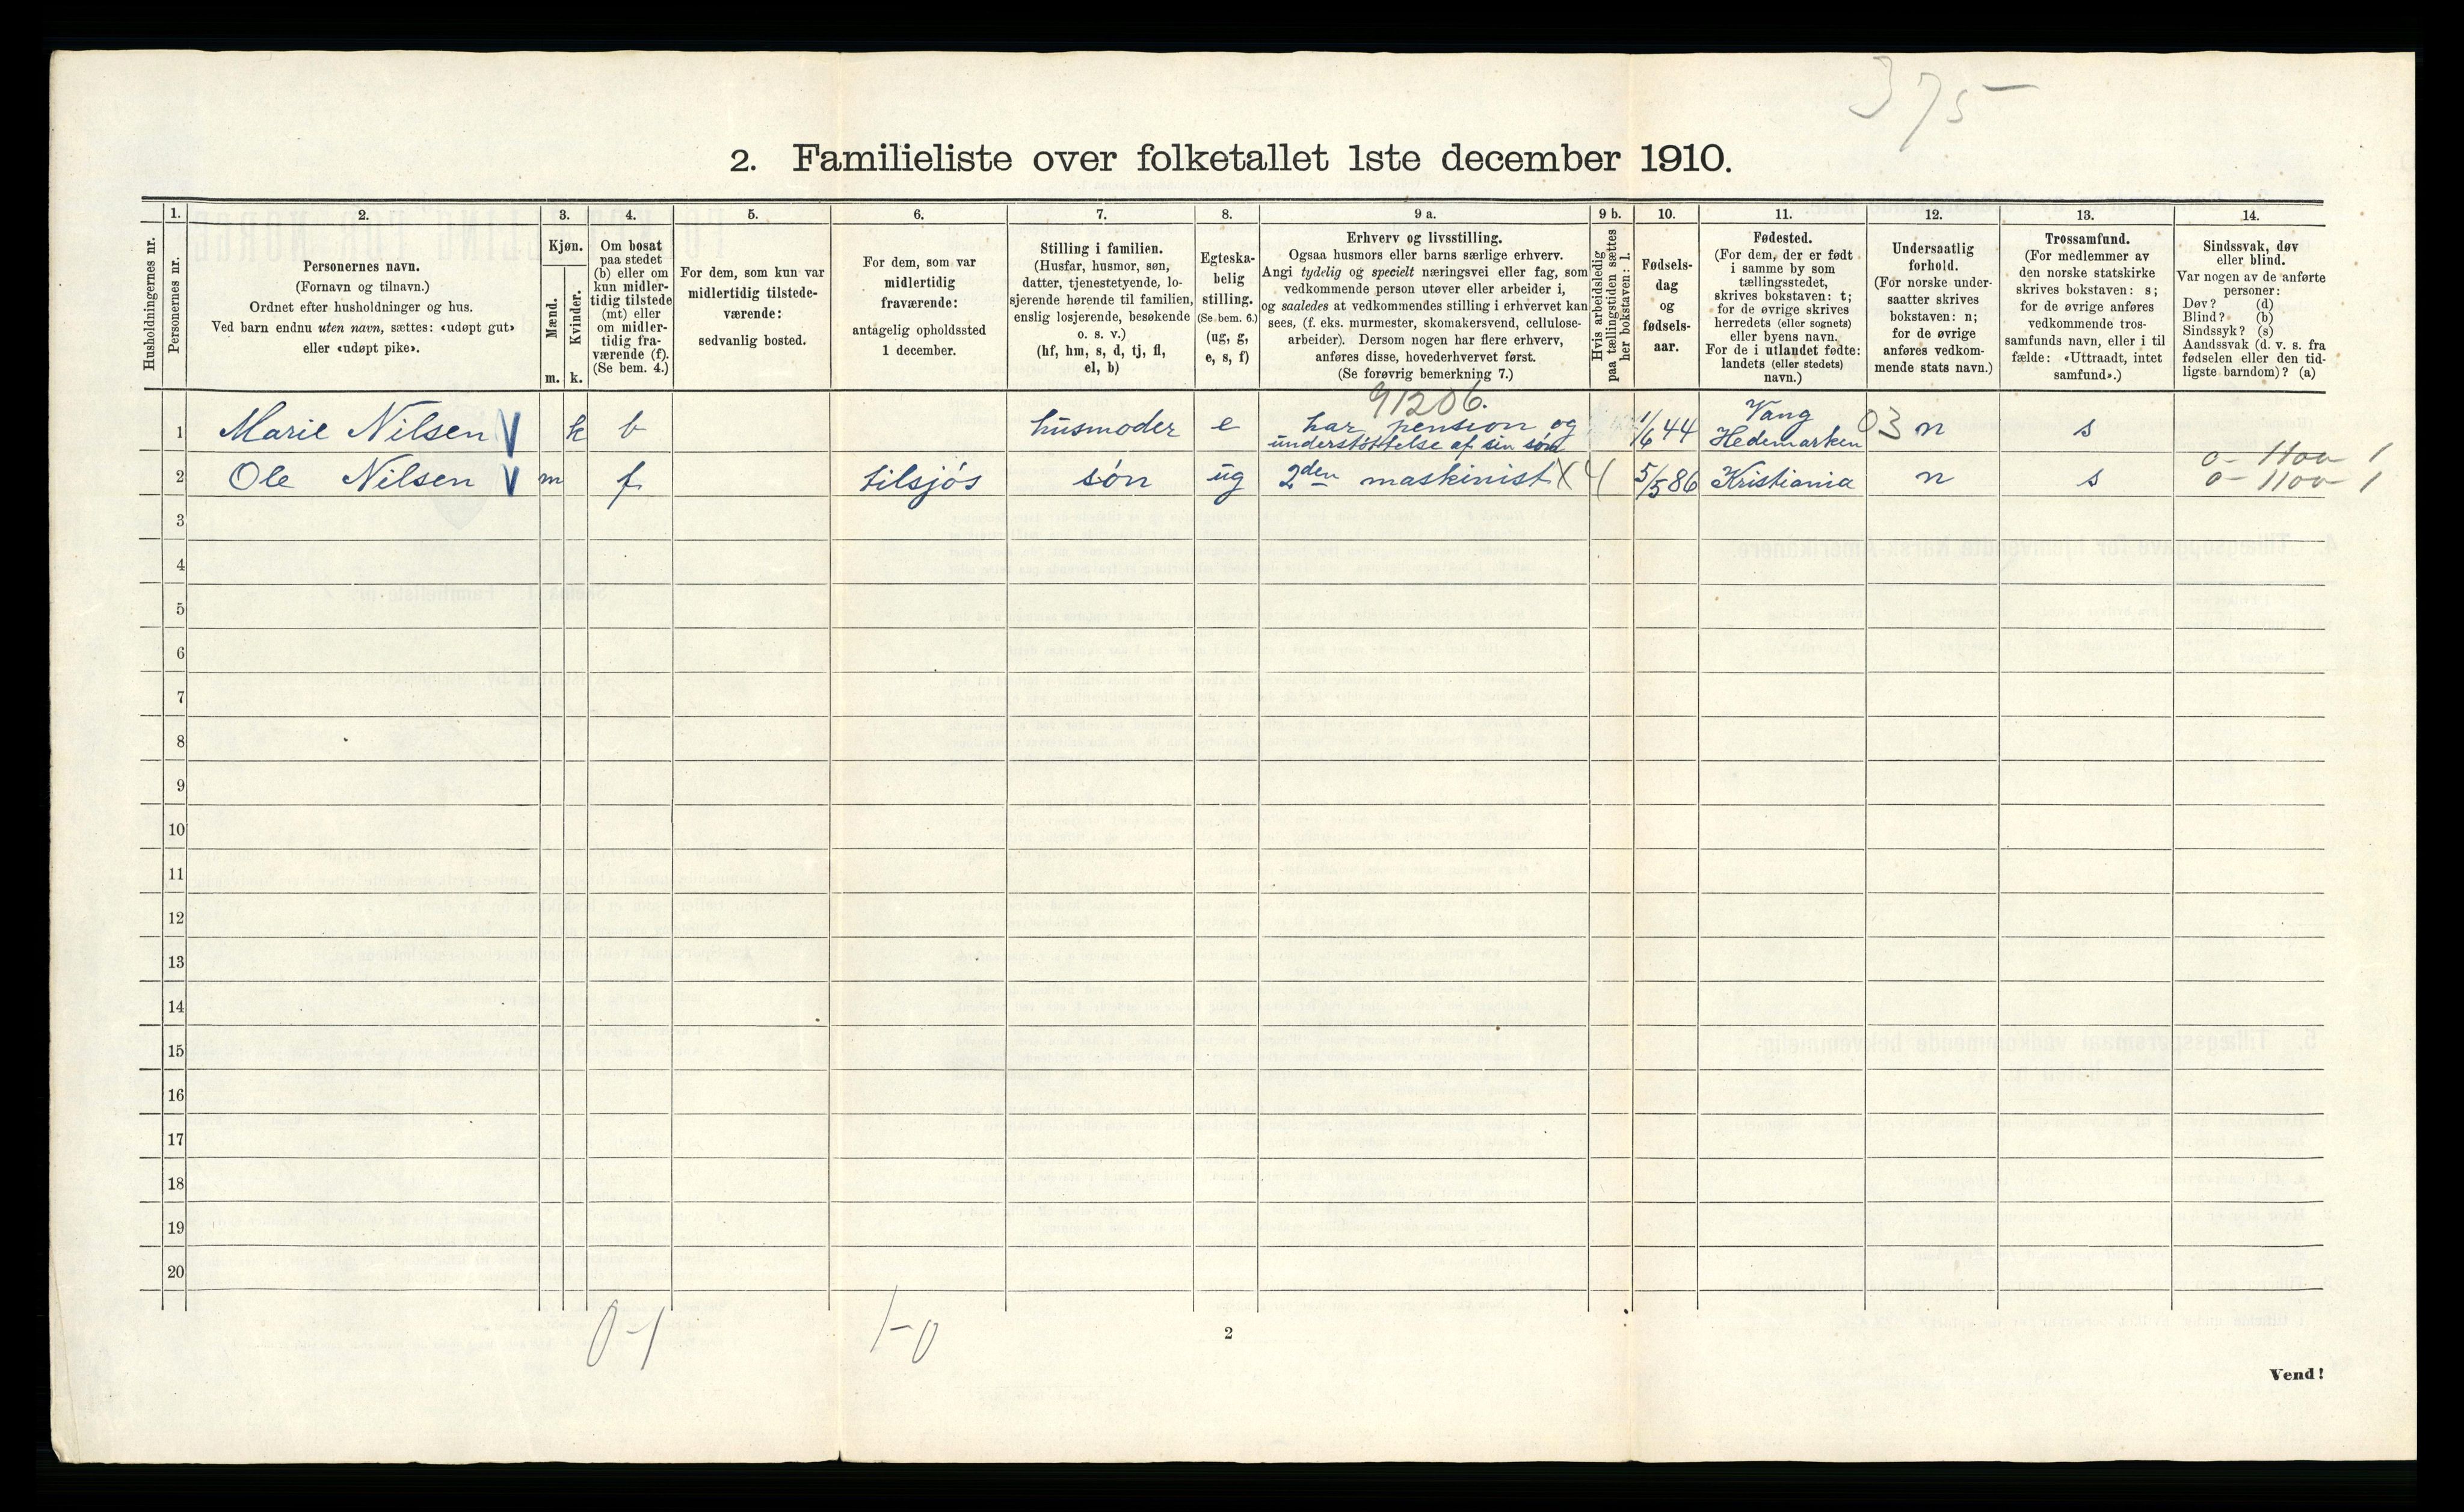 375-
2. Familieliste over folketallet 1ste december 1910.
Husholdningernes nr.
1.
Personernes nr.
2.
Personernes navn.
(Fornavn og tilnavn.)
Ordnet efter husholdninger og hus.
Ved barn endnu uten navn, sættes: «udøpt gut»
eller «udøpt pike».
3.
Kjøn.
Mænd.
Kvinder.
m. k.
4.
Om bosat
paa stedet
(b) eller om
kun midler-
tidig tilstede
(mt) eller
om midler-
tidig fra-
værende (f).
(Se bem. 4.)
5.
For dem, som kun var
midlertidig tilstede-
værende:
sedvanlig bosted.
6.
For dem, som var
midlertidig
fraværende:
antagelig opholdssted
1 december.
7.
Stilling i familien.
(Husfar, husmor, søn,
datter, tjenestetyende, lo-
sjerende hørende til familien,
enslig losjerende, besøkende
o. s. v.)
(hf, hm, s, d, tj, fl,
el, b)
8.
Egteska-
belig
stilling.
(Se bem. 6.)
(ug, g,
e, s, f)
9 a.
Erhverv og livsstilling.
Ogsaa husmors eller barns særlige erhverv.
Angi tydelig og specielt næringsvei eller fag, som
vedkommende person utøver eller arbeider i,
og saaledes at vedkommendes stilling i erhvervet kan
sees, (f. eks. murmester, skomakersvend, cellulose-
arbeider). Dersom nogen har flere erhverv,
anføres disse, hovederhvervet først.
(Se forøvrig bemerkning 7.)
9 b.
Hvis arbeidsledig
paa tællingstiden sættes
her bokstaven: l.
10.
Fødsels-
dag
og
fødsels-
aar.
11.
Fødested.
(For dem, der er født
i samme by som
tællingsstedet,
skrives bokstaven: t;
for de øvrige skrives
herredets (eller sognets)
eller byens navn.
For de i utlandet fødte:
landets (eller stedets)
navn.)
12.
Undersaatlig
forhold.
(For norske under-
saatter skrives
bokstaven: n;
for de øvrige
anføres vedkom-
mende stats navn.)
13.
Trossamfund.
(For medlemmer av
den norske statskirke
skrives bokstaven: s;
for de øvrige anføres
vedkommende tros-
samfunds navn, eller i til
fælde: «Uttraadt, intet
samfund».)
14.
Sindssvak, døv
eller blind.
Var nogen av de anførte
personer:
Døv? (d)
Blind? (b)
Sindssyk? (s)
Aandssvak (d. v. s. fra
fødselen eller den tid-
ligste barndom)? (a)
91206.
1 Marie Nilsen V k b husmoder e har pension og understöttelse af sin søn 1/6 44 Vang Hedemarken 03 n s
2 Ole Nilsen V m f tilsjøs søn ug 2den maskinist X 4 5/5 86 Kristiania n s
3
4
5
6
7
8
9
10
11
12
13
14
15
16
17
18
19
20
0-1
1-0
2
Vend!